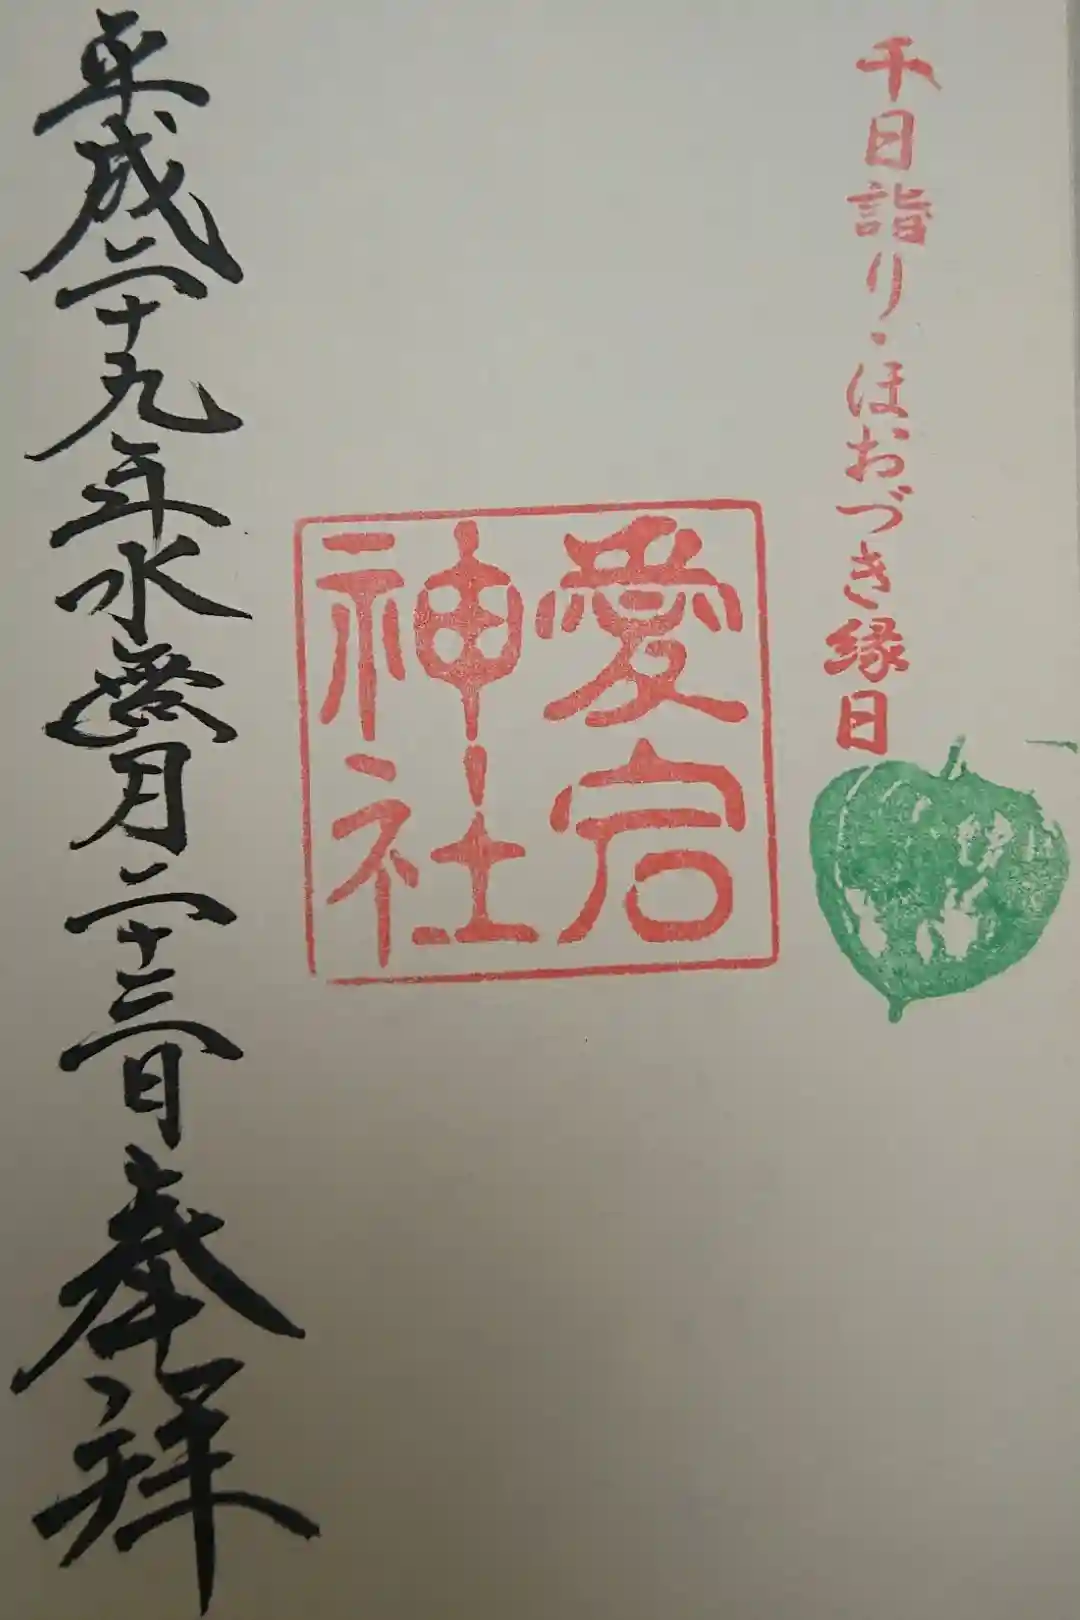 千日詣り・ほおづき縁日
愛宕
神社
平成二十九年水無月二十三日奉拝